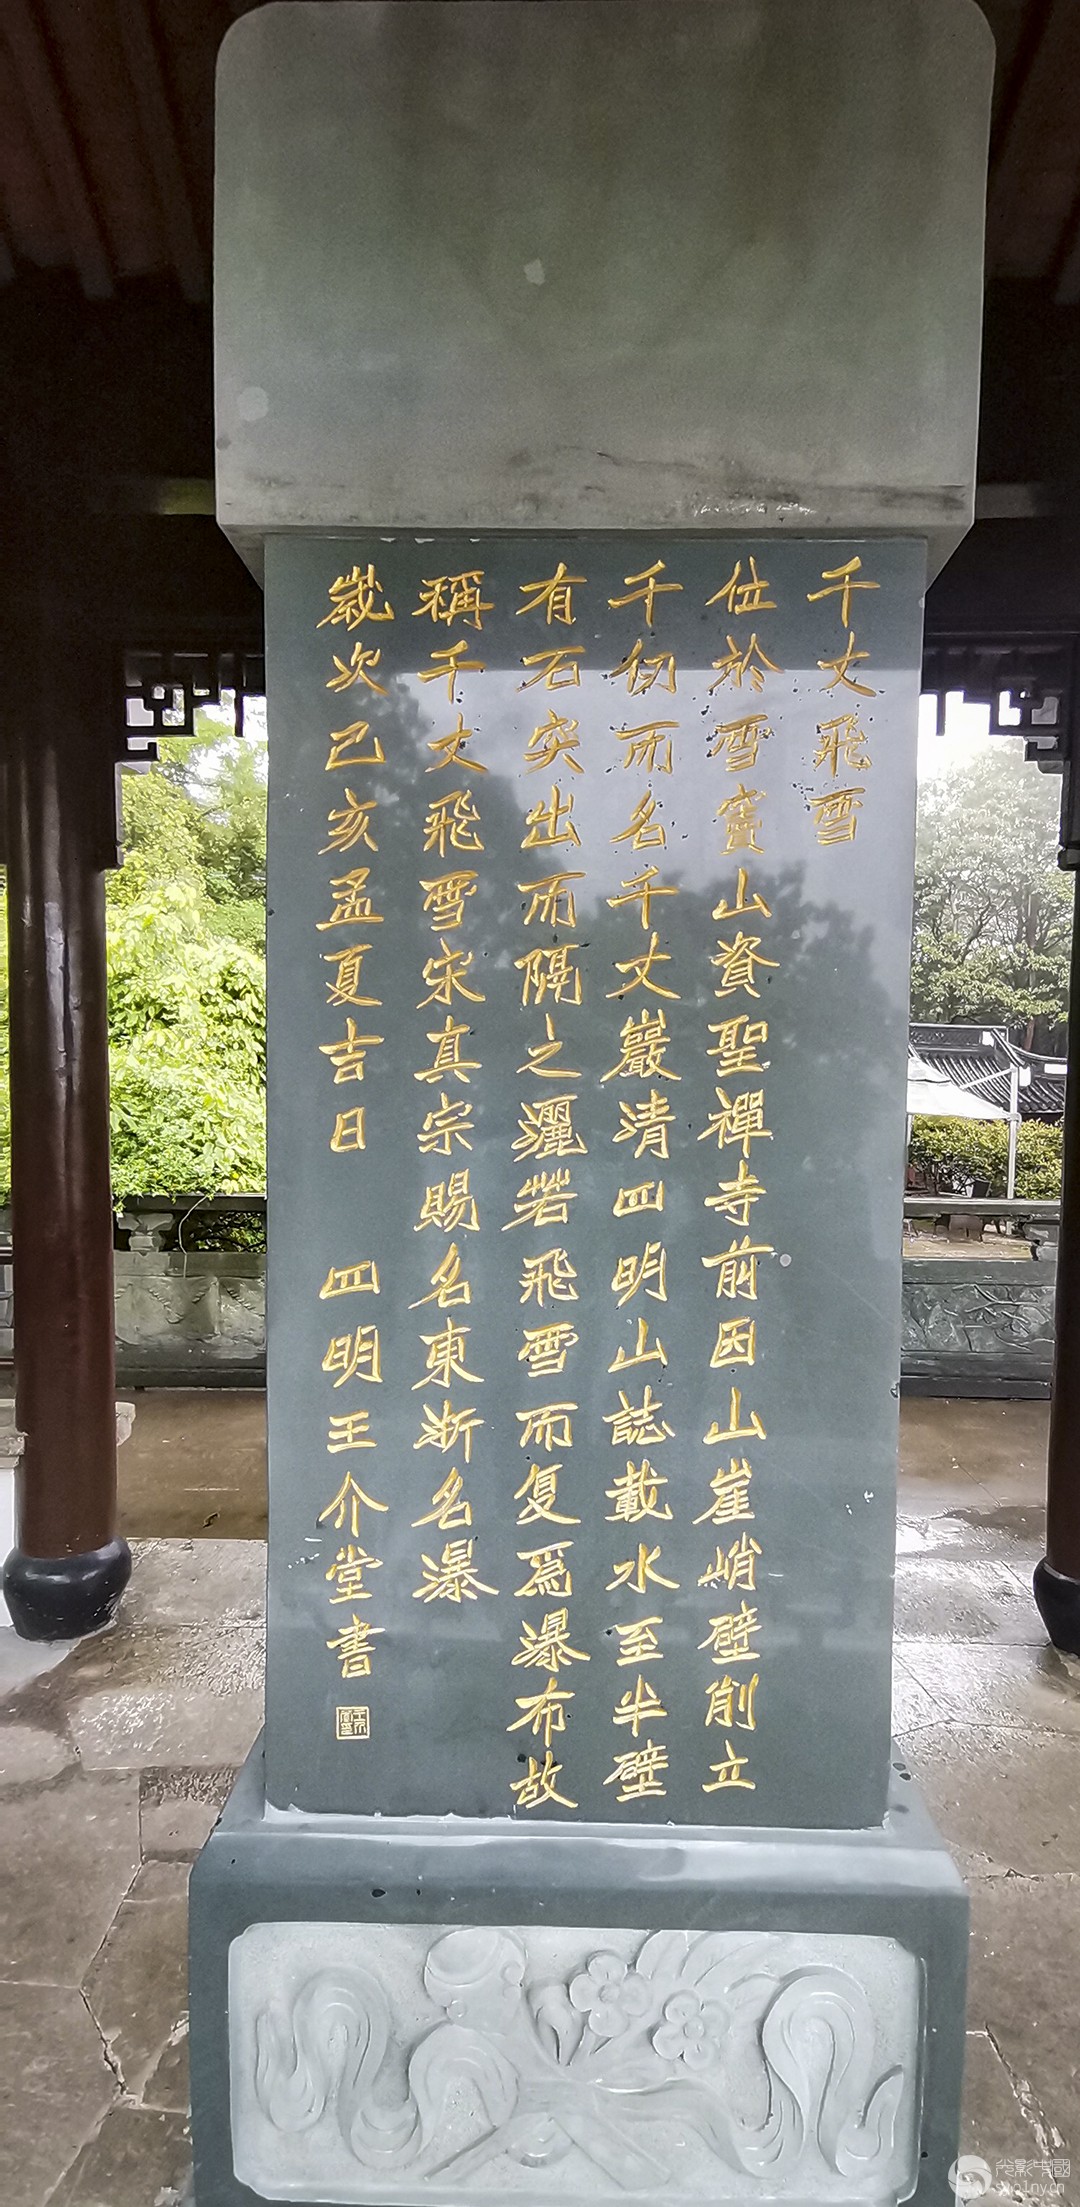 千丈飛雪
位於雪竇山資聖禪寺前因山崖峭壁削立
千仞而名千丈巖清四明山誌載水至半壁
有石突出而隔之灑若飛雪而复爲瀑布故
稱千丈飛雪宋真宗賜名東浙名瀑
歲次己亥孟夏吉日 四明王介堂書
光影中國